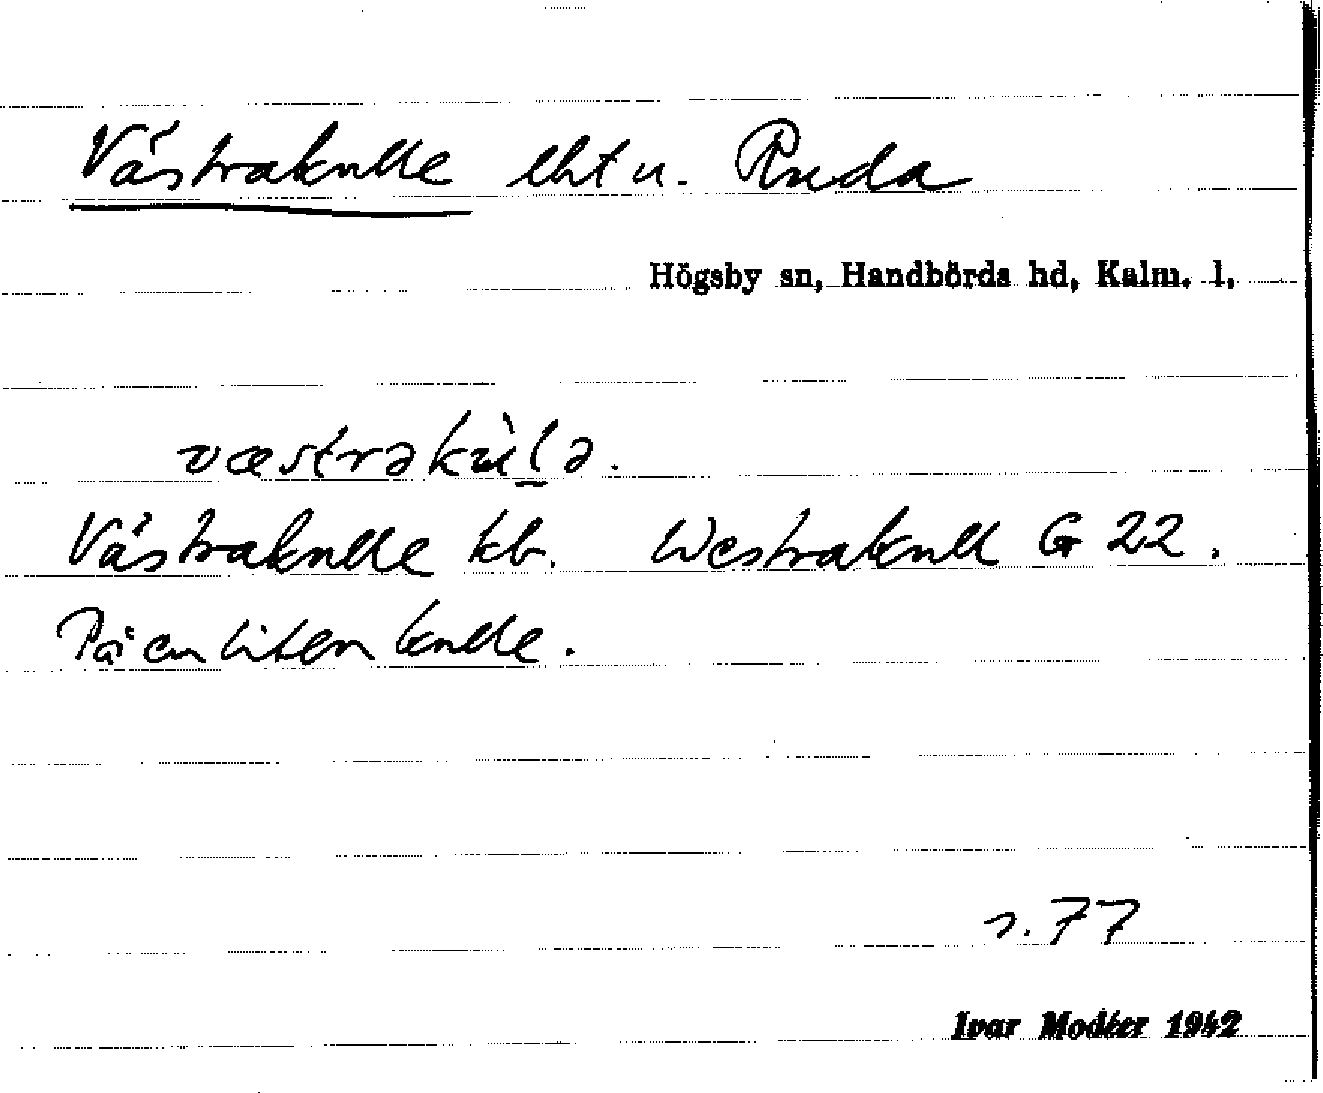 Västrakulle lht u. Ruda
Högsby sn, Handbörds hd, Kalm. l.
væstrəkùlə.
Västrakulle kb. Westrakull G 22.
På en liten kulle.
s. 77
Ivar Modéer 1942